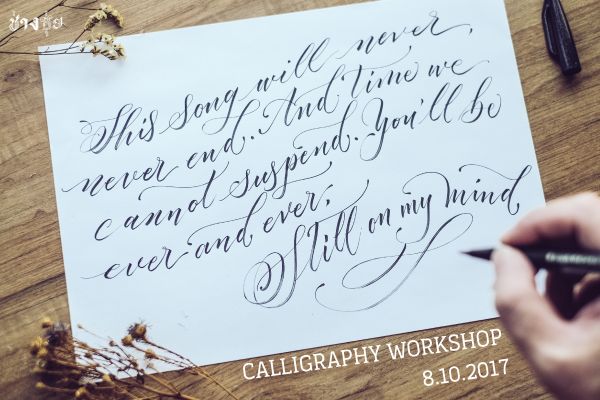 ช่างคุย
This song will never,
never end. And time we
cannot suspend. You'll be
ever and ever,
Still on my mind
CALLIGRAPHY WORKSHOP
8.10.2017